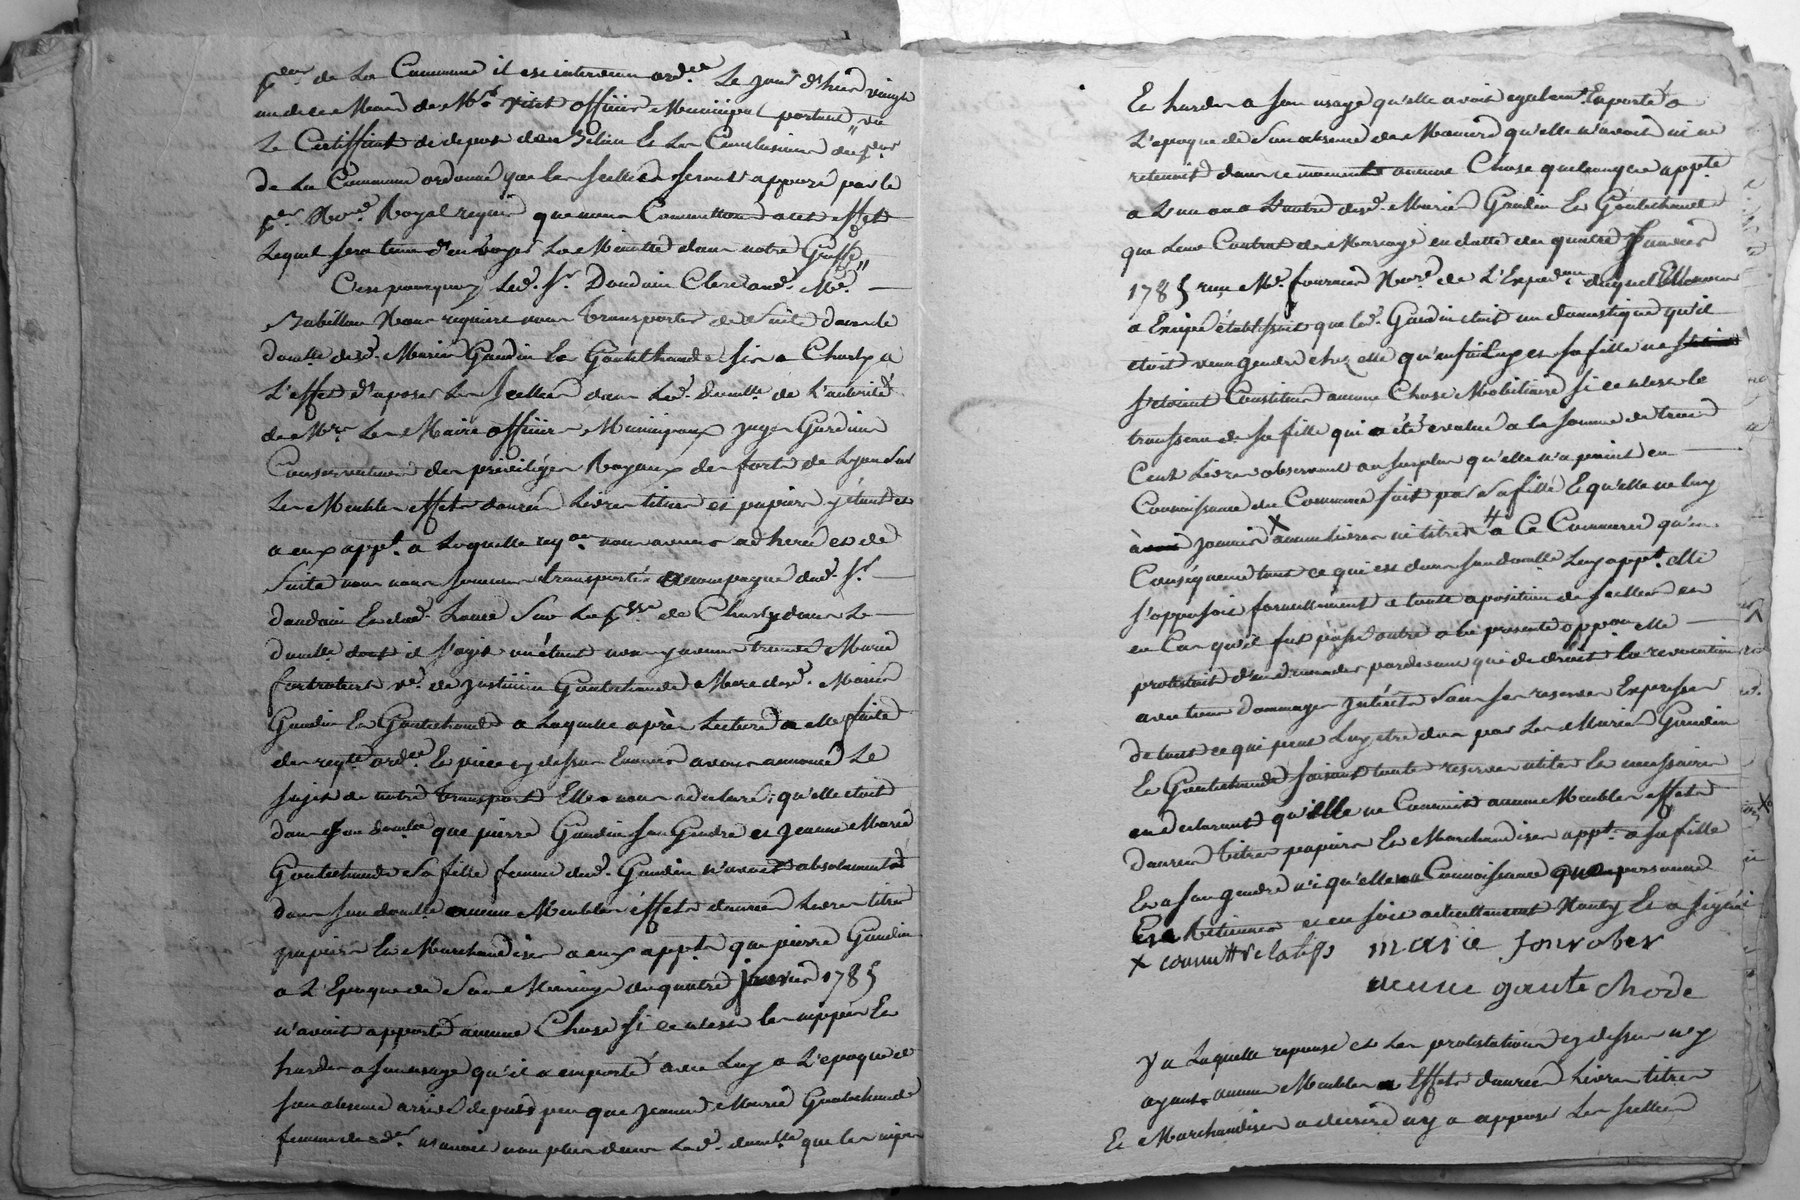 de La Commune il est intervenu ordce Le jour d'hier vingt
un de ce Mois de Mr Vitet officier Municipal portant vu
Le Certifficat de depot de Bilan Et Les Conclusions du
de La Commune ordonne que les scellés seront apposé par le
per Nore Royal requis que nous Commettons a cet effet
Lequel sera tenu d'en voyer La Minutte dans notre Greffe
C'est pourquoy Led. Sr Daudoin Clerc aud. Me
Nous requiert nous transporter de Suite dans le
domlle desd. Mariés Gaudin Et Goutechaude sis a Charly a
L'effet d'aposer Les scellés dans Led. domlle de L'autorité
de Mrs Les Maire officiers Municipaux juges Gardiens
Conservateurs des privilèges Royaux des foires de Lyon sur
Les Meubles effets danrées Livres titres et papiers y étant et
a eux appt a Laquelle reqon nous avons adheré et de
Suite nous nous sommes transporté accompagné dud. Sr
Daudoin Et dud. Sur La psse de Charly dans Le
domlle dont il s'agit ou étant nous y avons trouvé Marie
ve de Goutechaude Mere desd. Mariés
Gaudin Et Goutechaude a Laquelle après Lecture a elle faite
des reqte ordce Et pieces cy dessus Enoncés avons annoncé Le
sujet de notre transport Elle nous a declaré, qu'elle etoit
dans son domlle que pierre Gaudin son Gendre et Jeanne Marie
Goutechaude sa fille femme dud. Gaudin n'avoit absolument
dans son domlle aucuns Meubles effets danrées Livres titres
papiers Et Marchandises a eux appts que pierre Gaudin
a L'Epoque de Son Mariage du quatre janvier 1785
n'avoit apporté aucune Chose si ce n'est les nippes Et
hardes a son usage qu'il a emporté avec Luy a L'epoque de
son absence arrivée depuis peu que Jeanne Marie Goutechaude
femme n'avoit non plus dans Led. domlle que les nipes
Et hardes a son usage qu'elle avoit egalemt Emporté a
L'epoque de Son absence de Maniere qu'elle n'avoit ni ne
retenoit dans ce moment aucune Chose quelconque appte
a L'un ou a L'autre desd. Mariés Gaudin Et Goutechaude
que Leur Contrat de Mariage en datte du quatre Janvier
1785 reçu Me fournier Nore de L'Expedon duquel Elle nous
a Exigée établissoit que led. Gaudin etoit un domestique qu'il
etoit venu gendre chez elle qu'en sa fille ne
s'etoient Constitués aucune Chose Mobiliaire si ce n'est le
trousseau de sa fille qui a été evalué a la somme de trois
Cent Livres observant au surplus qu'elle n'a point eu
Connoissance du Commerce fait par Sa fille Et qu'elle ne luy
a jamais X aucuns Livres ni titres # a Ce Commerce qu'en
Conséquence tout ce qui est dans son domlle Luy appt elle
s'opposoit formellement a toute aposition de scellés en
en Cas qu'il fut passé outre a la presente oppon elle
protestoit d'en demander par devant qui de droit la revocation
avec tous dommages intérêts Sans ses reserves Expresses
de tout ce qui peut Luy etre du par Les Mariés Gaudin
Et Goutechaude faisant toutes reserves utiles Et necessaires
en declarant qu'elle ne Connoit aucuns Meubles effets
danrées titres papiers Et Marchandises appt a sa fille
Et a son gendre ni qu'elle eu Connoissance que personne
Et a signé
X connu # relatifs marie
veuve goute chode
y a Laquelle reponse et Les protestations cy dessus n'y
ayant aucuns Meubles Effets danrées Livres titres
Et Marchandises a decrire ny a apposer Les scellés